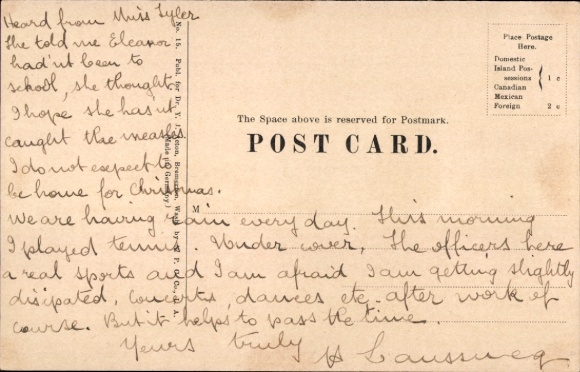 Heard from Miss Tyler
She told me Eleanor
had'nt been to
school, she thought.
I hope she has'nt
caught the measles.
I do not expect to
be home for Christmas.
We are having rain every day. This morning
I played tennis. Under cover, The officers here
a real sports and I am afraid I am getting slightly
disipated, concerts, dances etc. after work of
course. But it helps to pass the time.
Yours truly H
No. 15. Publ. for Dr. V. J. Bremerton, Wash. by
(Made in Germany)
The Space above is reserved for Postmark.
POST CARD.
M
Place Postage
Here.
Domestic
Island Pos-
sessions
Canadian
Mexican
1 c
Foreign 2 c